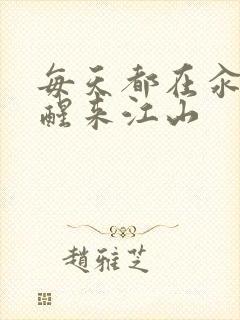 每天都在汆
醒来江山
趙雅芝